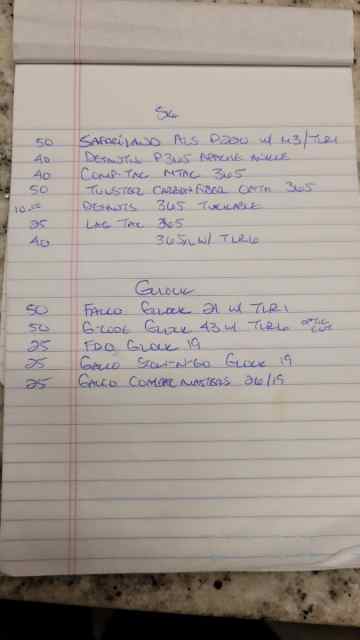 Sig
50 SAFARILAND ALS P320 w/ M3/TLR1
40 DESANTIS P365 APACHE ANKLE
40 COMP-TAC MTAC 365
50 TULSTER CARBON FIBER OATH 365
10.00 DESANTIS 365 TUCKABLE
25 LAG TAC 365
40 365XL W/ TLR6
GLOCK
50 FALCO GLOCK 21 w/ TLR1
50 G-CODE GLOCK 43 W/ TLR6 OPTIC CUT
25 GLOCK 19
25 GALCO STOW-N-GO GLOCK 19
25 GALCO COMBAT MASTERS 26/19